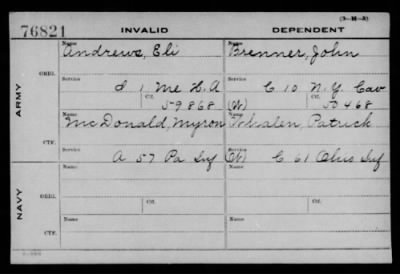 (3-M-8)
76821 INVALID DEPENDENT
Name Name
Andrews, Eli Brenner, John
ORIG.
Service Service
I 1 Me H.A C 10 N.Y. Cav
Ctf. Ctf.
59868 (W) 50468
ARMY
Name Name
McDonald, Myron Whalen, Patrick
CTF.
Service Service
A 57 Pa Inf (W) C 61 Ohio Inf
Name Name
ORIG.
Service Ctf. Service Ctf.
NAVY
Name Name
CTF.